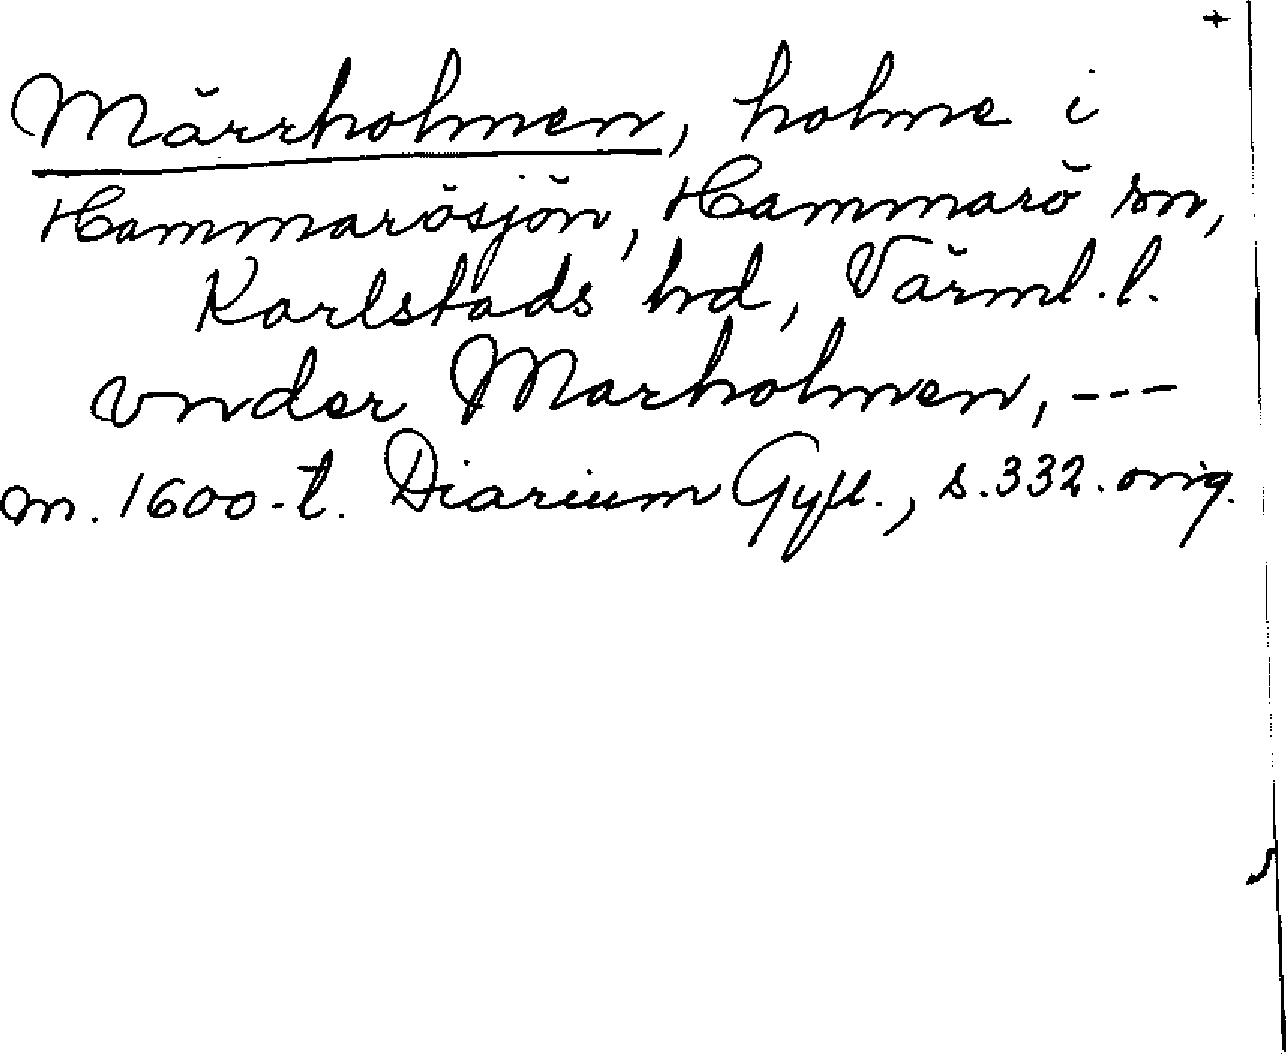 +
Märrholmen, holme i
Hammarösjön, Hammarö sn,
Karlstads hd, Värml. l.
vnder Marholmen, ---
m. 1600-t. Diarium Gyll., s. 332. orig.